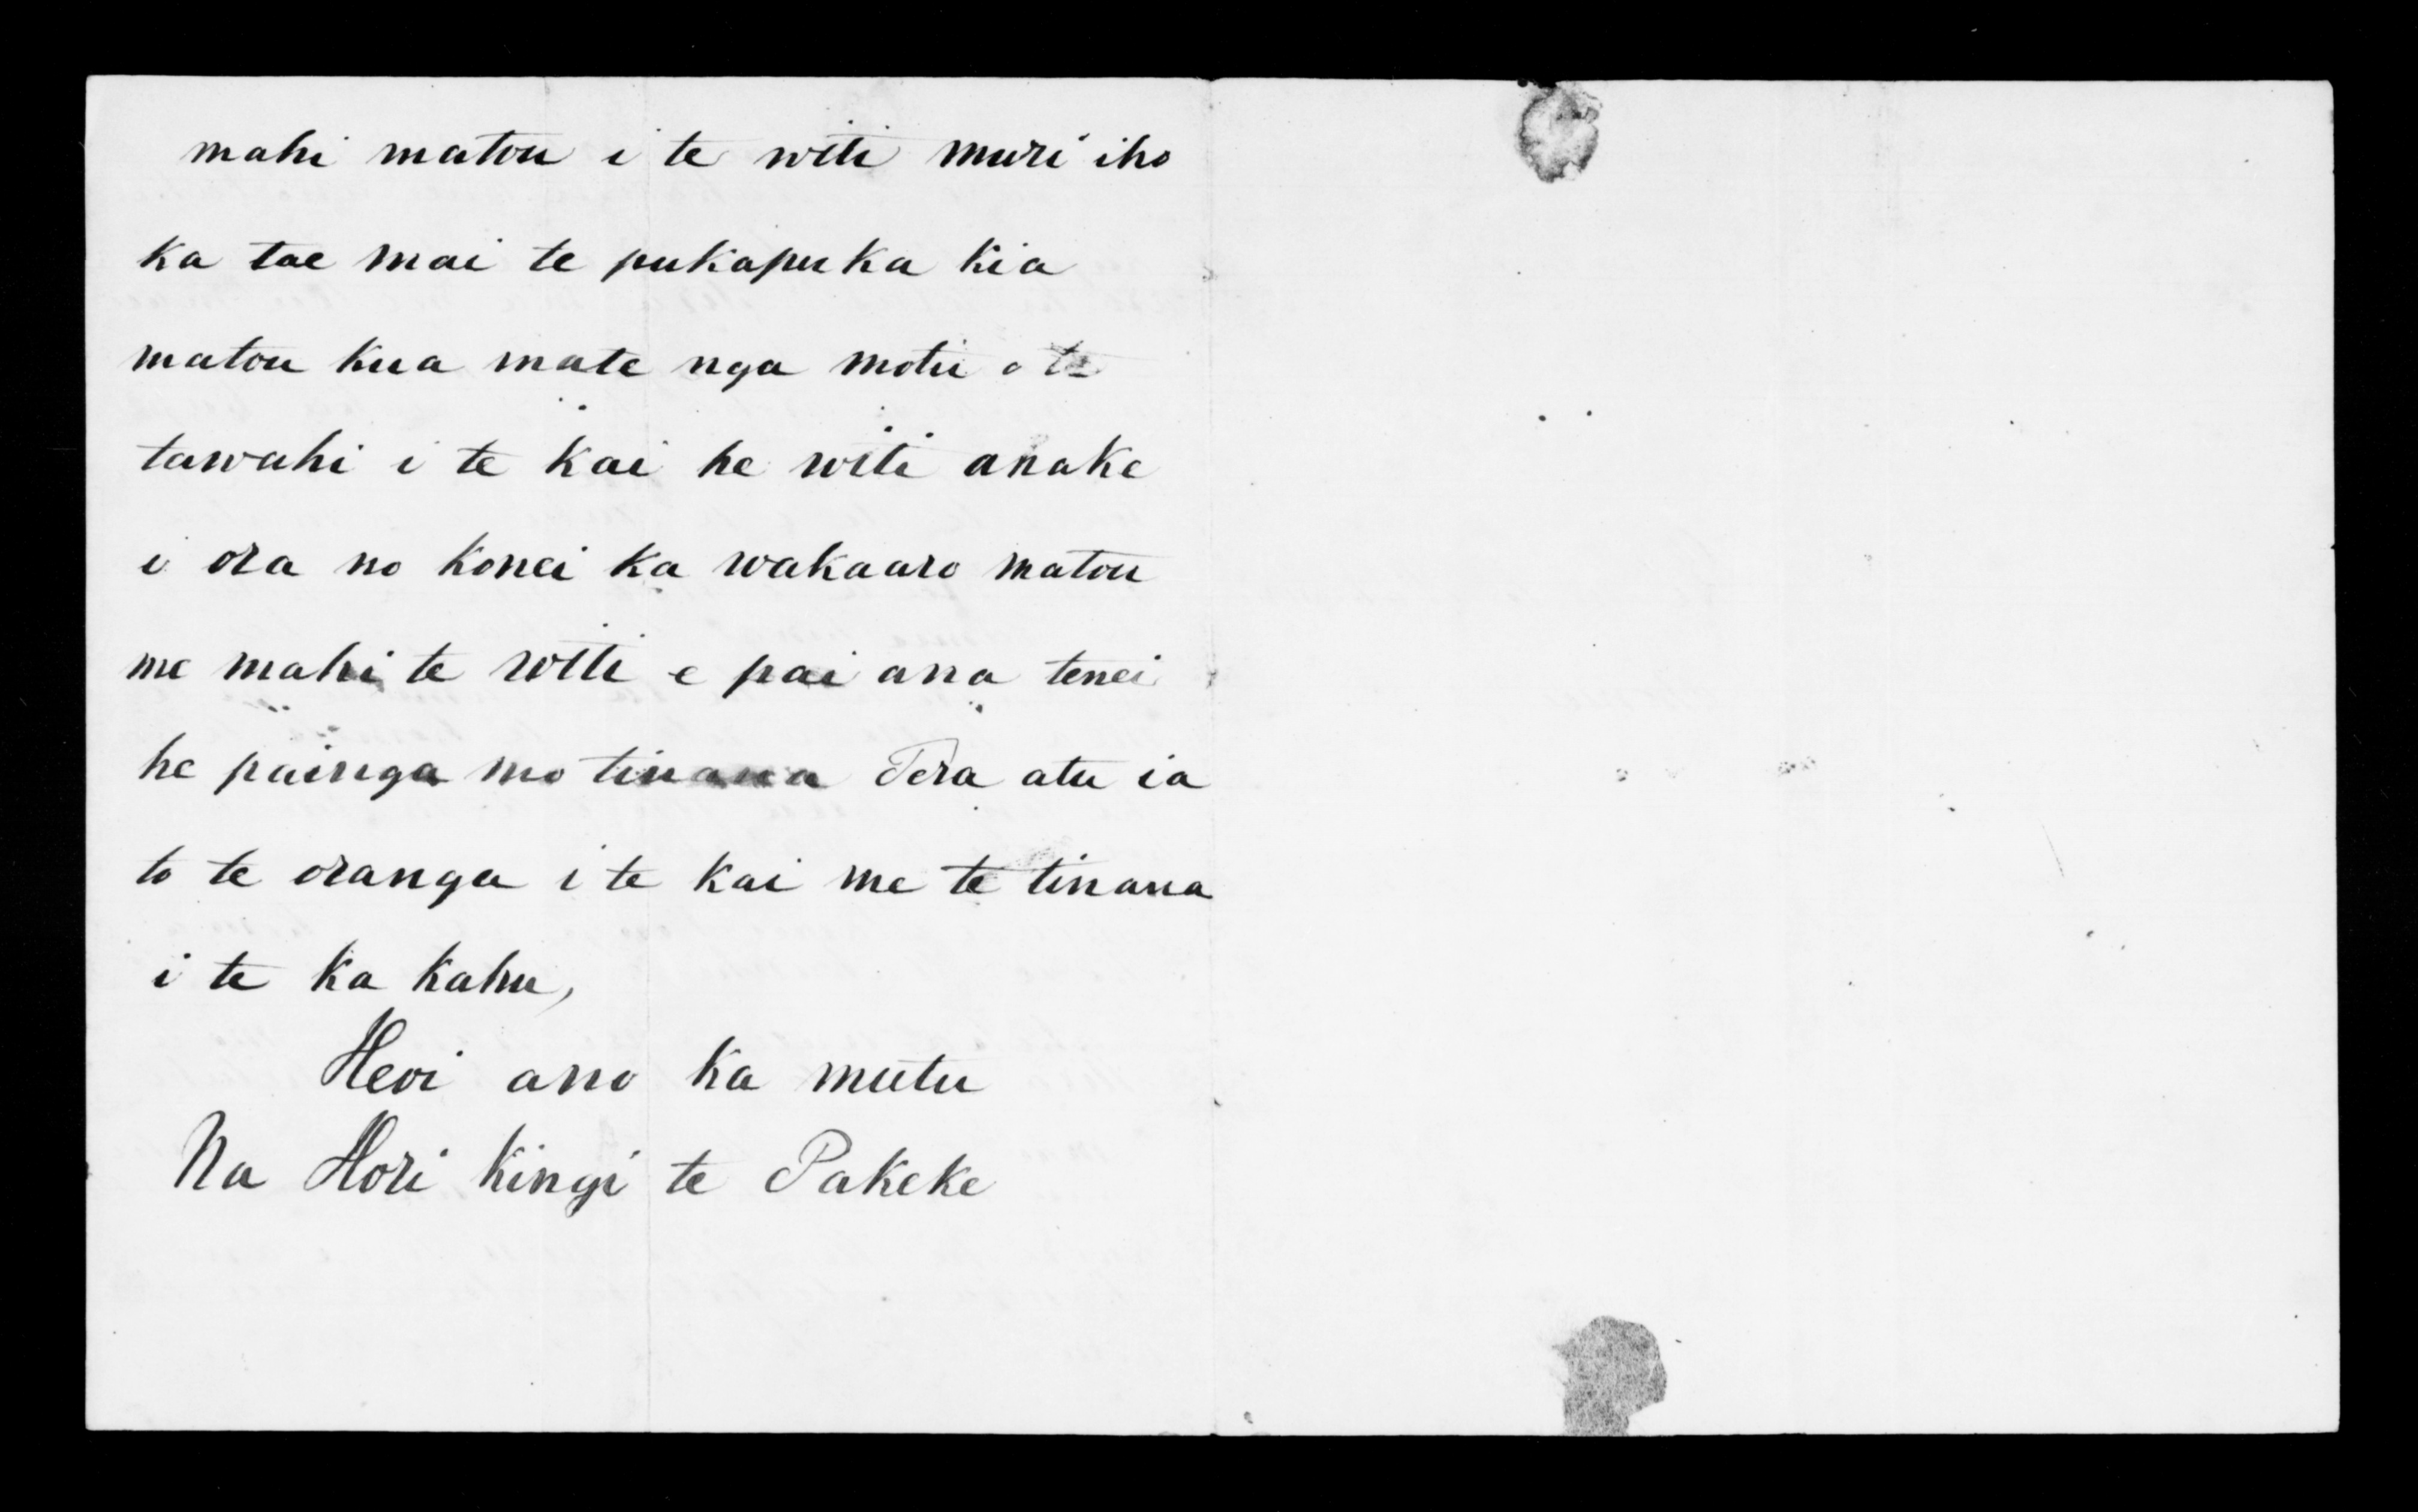 mahi matou i te witi muri iho
ka tae mai te pukapuka kia
matou kua mate nga motu o te
tawahi i te kai he witi anake
i ora no konei ka wakaaro matou
me mahi te witi e pai ana tenei
he painga mo tinana Tera atu ia
to te oranga i te kai me te tinana
i te ka kahu,
Heoi ano ka mutu
Na Hori Kingi te Pakeke